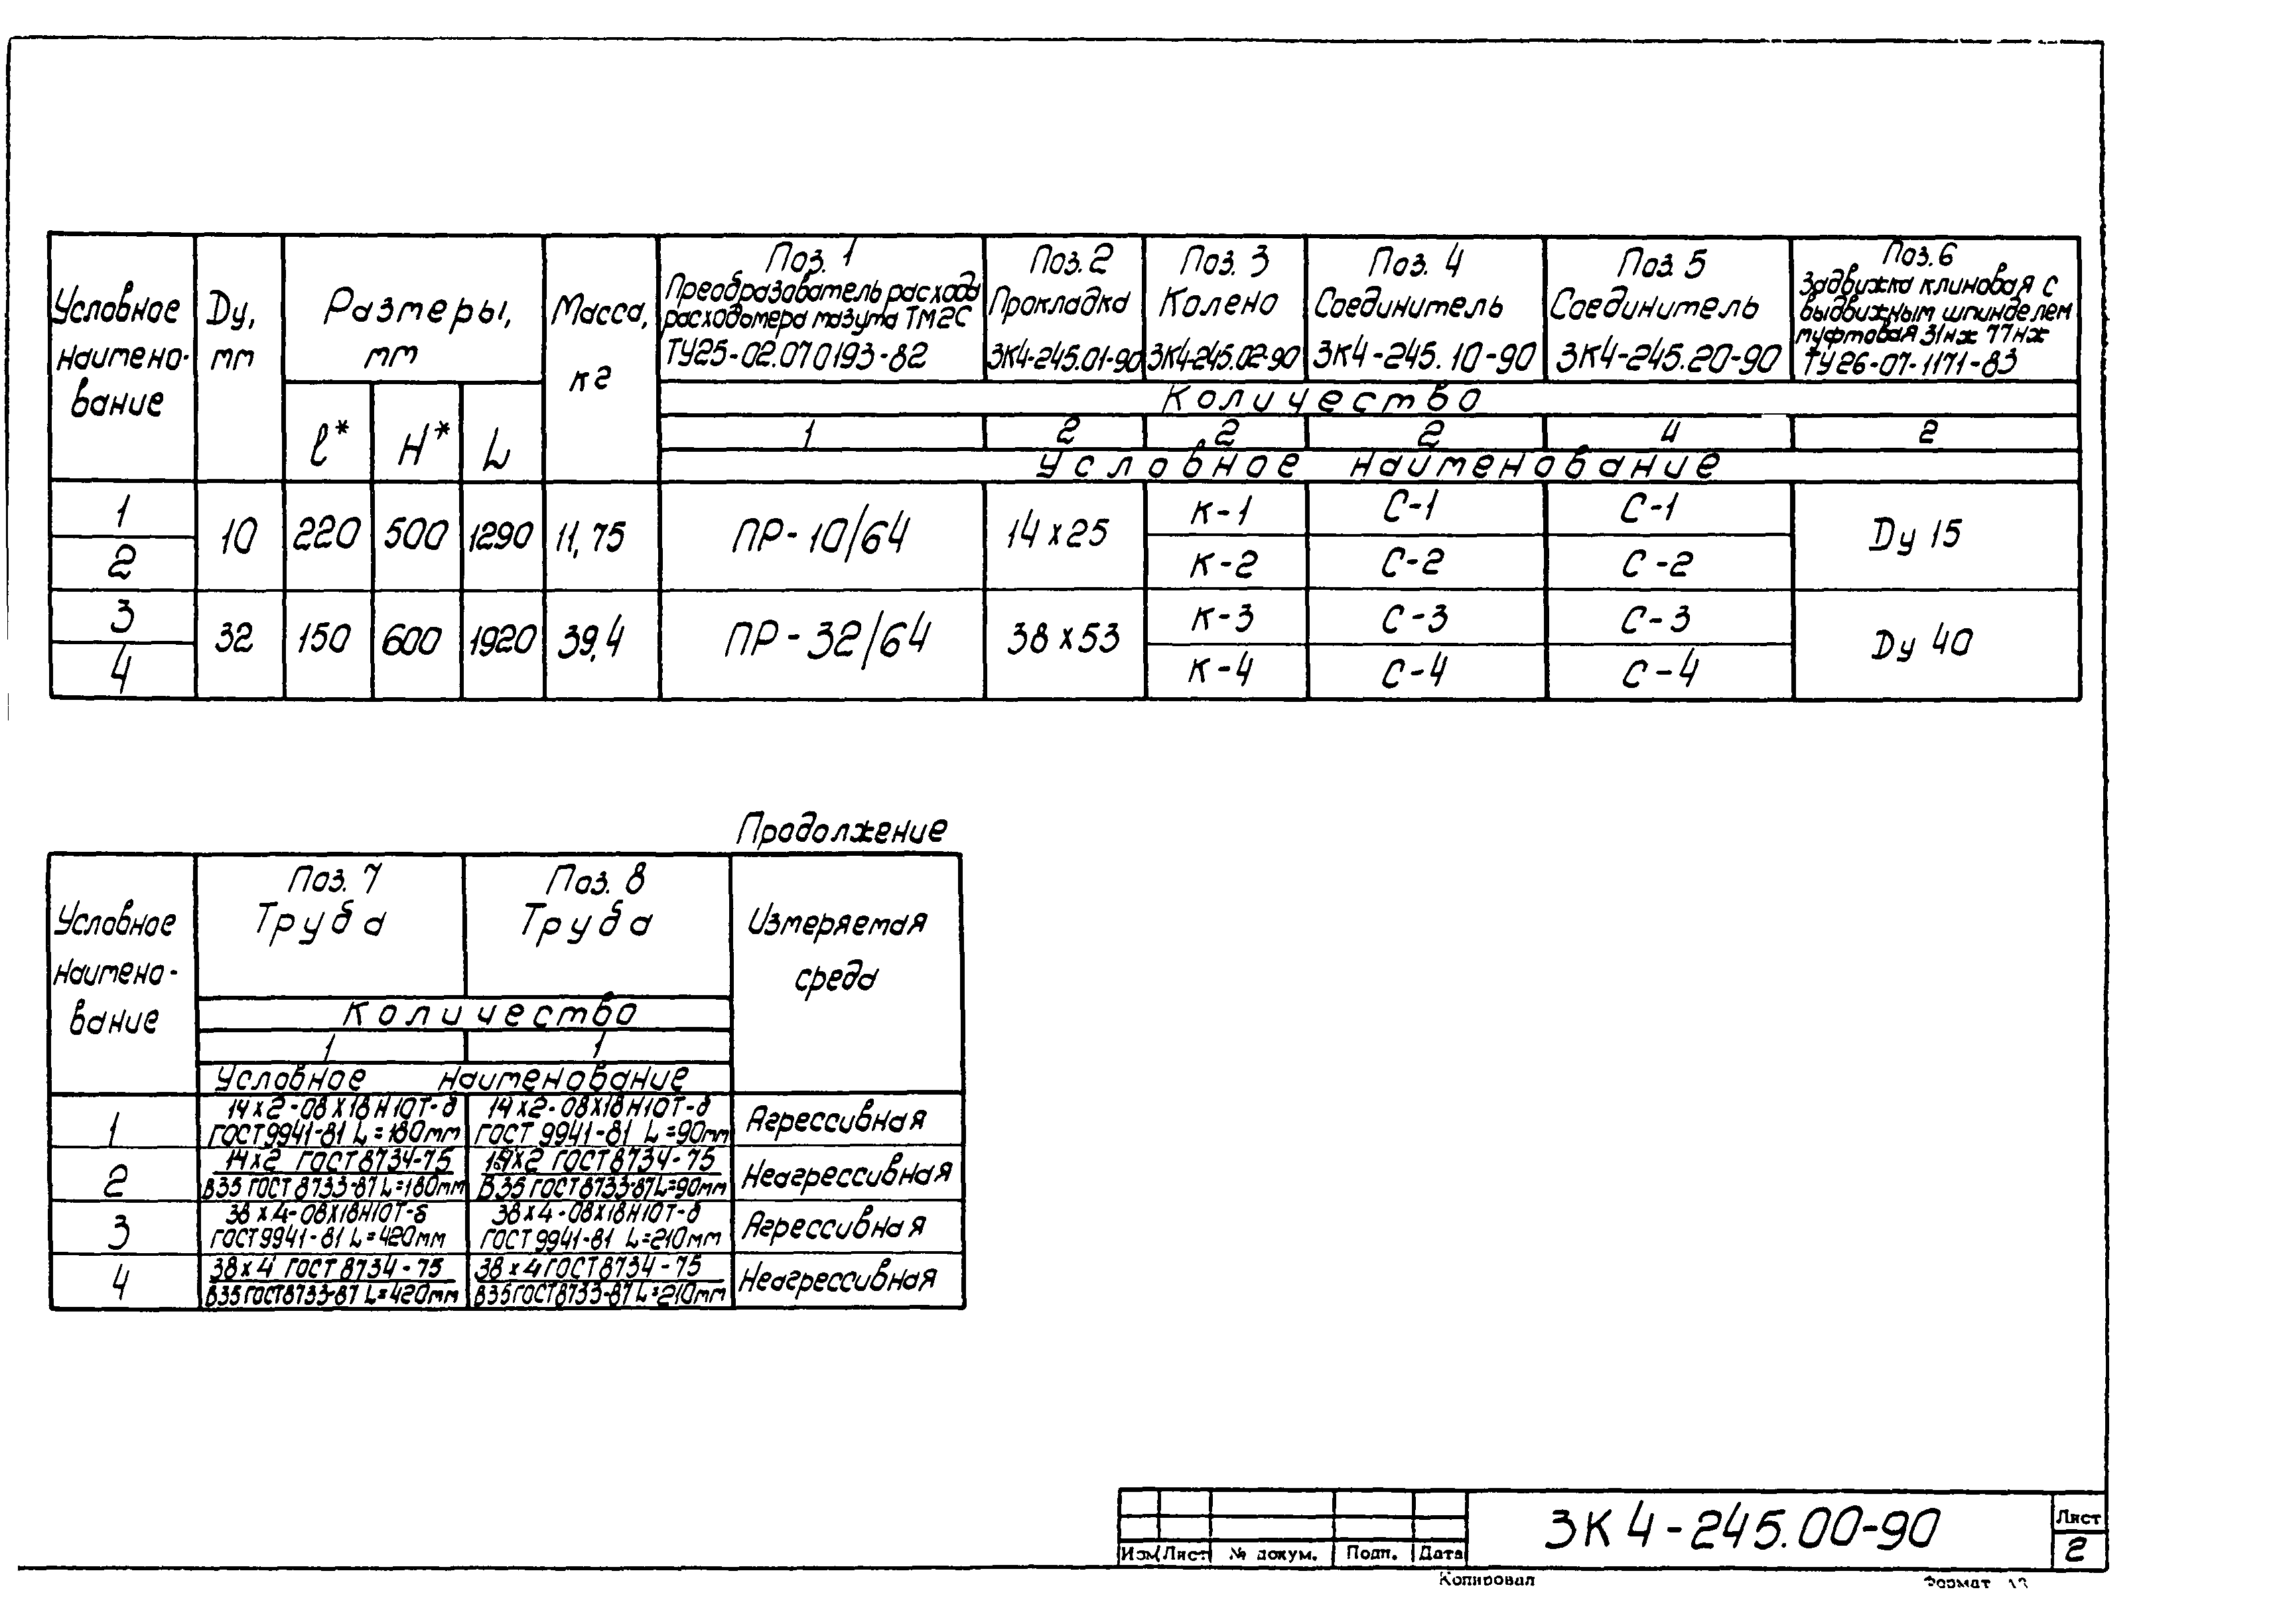 Условное наимено- вание
Dу, мм
Размеры, мм
l* H* L
Масса, кг
Поз. 1
Преобразователь расхода
расходомера мазута ТМ2С
ТУ25-02.070193-82
Поз. 2
Прокладка
ЗК4-245.01-90
Поз. 3
Колено
ЗК4-245.02-90
Поз. 4
Соединитель
ЗК4-245.10-90
Поз. 5
Соединитель
ЗК4-245.20-90
Поз. 6
Задвижка клиновая с
выдвижным шпинделем
муфтовая 31нж 77нж
ТУ26-07-1171-83
Количество
1 2 2 2 4 2
Условное наименование
1 К-1 С-1 С-1
10 220 500 1290 11,75 ПР-10/64 14х25 Dу 15
2 К-2 С-2 С-2
3 К-3 С-3 С-3
32 150 600 1920 39,4 ПР-32/64 38х53 Dу 40
4 К-4 С-4 С-4
Продолжение
Условное
наимено-
вание
Поз. 7
Труба
Поз. 8
Труба
Измеряемая
среда
Количество
1 1
Условное наименование
1
14х2-08Х18Н10Т-б
ГОСТ9941-81 L=180мм
14х2-08Х18Н10Т-б
ГОСТ 9941-81 L=90мм
Агрессивная
2
14х2 ГОСТ8734-75
В35 ГОСТ 8733-87 L=180мм
14х2 ГОСТ8734-75
В35 ГОСТ8733-87 L=90мм
Неагрессивная
3
38х4-08Х18Н10Т-б
ГОСТ9941-81 L=420мм
38х4-08Х18Н10Т-б
ГОСТ9941-81 L=210мм
Агрессивная
4
38х4 ГОСТ8734-75
В35ГОСТ8733-87 L=420мм
38х4 ГОСТ8734-75
В35ГОСТ8733-87 L=210мм
Неагрессивная
Изм Лист № докум. Подп. Дата
ЗК4-245.00-90
Лист
2
Копировал
Формат А3